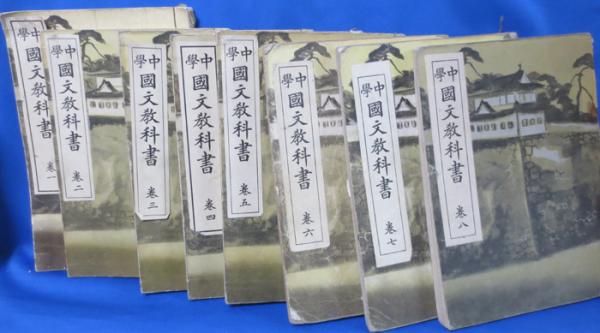 中學國文教科書 卷一
中學國文教科書 卷二
中學國文教科書 卷三
中學國文教科書 卷四
中學國文教科書 卷五
中學國文教科書 卷六
中學國文教科書 卷七
中學國文教科書 卷八